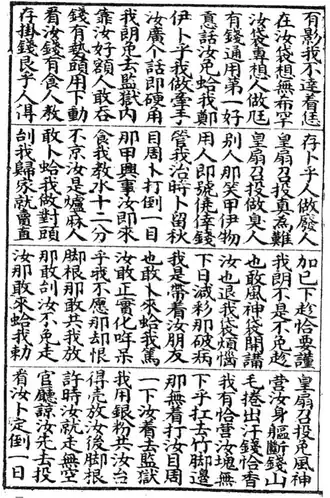 有影我不達看恁
在汝袋想無布罕
汝袋專想人做尫
有錢通用第一好
意話汝免蛤我鄭
伊卜乎我做牽手
汝廣个話即硬角
我朗免去監獄內
靠汝好額人敢吞
錢有藝頭用下動
看汝錢有食人教
存掛錢艮乎人得
存卜乎人做廢人
皇扇召投真為難
皇扇召投做臭人
別人那笑甲伊物
用人即號僥倖錢
管我治時卜留秋
目周卜打倒一目
那甲興事汝即來
食我教水十二分
不京汝是爐麻人
敢卜蛤我做對頭
刣我歸家就會直
加已下趁恰要謹
我朗不是不免趁
也敢風神袋開講
汝也退我袋煩惱
下日減彩那破病
我是帶看汝朋友
也敢卜來蛤我罵
汝敢正實化呼呆
乎我不應那却恨
脚根那敢共我放
那敢刣汝不免走
汝那敢來蛤我勅
皇扇召投免風神
营汝身軀斷錢山
毛捲出汗錢恰香
我有恰营汝塊無
下乎扛去竹脚邊
那無着打汝目周
一下汝看去監獄
我用銀粉共汝台
得罪放汝後脚根
許時汝就走無空
官廳諒汝先去投
看汝卜定倒一日